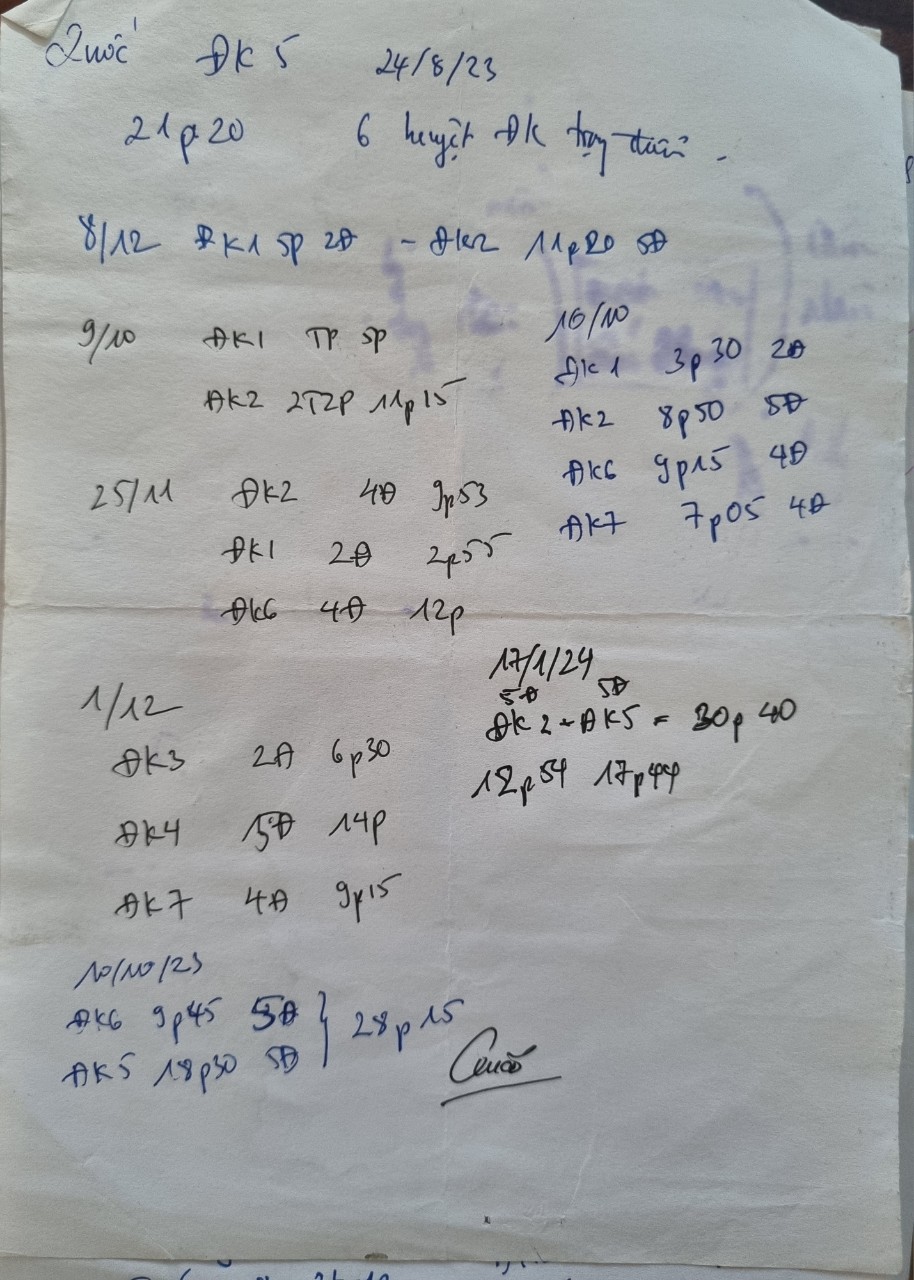 Quốc ĐK 5 24/8/23
21p20 6 huyệt ĐK
8/12 ĐK1 5p 2Đ - ĐK2 11p20 5Đ
9/10 ĐK1 TP 5p
ĐK2 2T2P 11p15
16/10
ĐK1 3p30 2Đ
ĐK2 8p50 5Đ
ĐK6 9p15 4Đ
ĐK7 7p05 4Đ
25/11 ĐK2 4Đ 9p53
ĐK1 2Đ 2p55
ĐK6 4Đ 12p
17/1/24
5Đ 5Đ
ĐK2 + ĐK5 = 30p40
12p54 17p44
1/12
ĐK3 2Đ 6p30
ĐK4 5Đ 14p
ĐK7 4Đ 9p15
10/10/23
ĐK6 9p45 5Đ } 28p15
ĐK5 18p30 5Đ